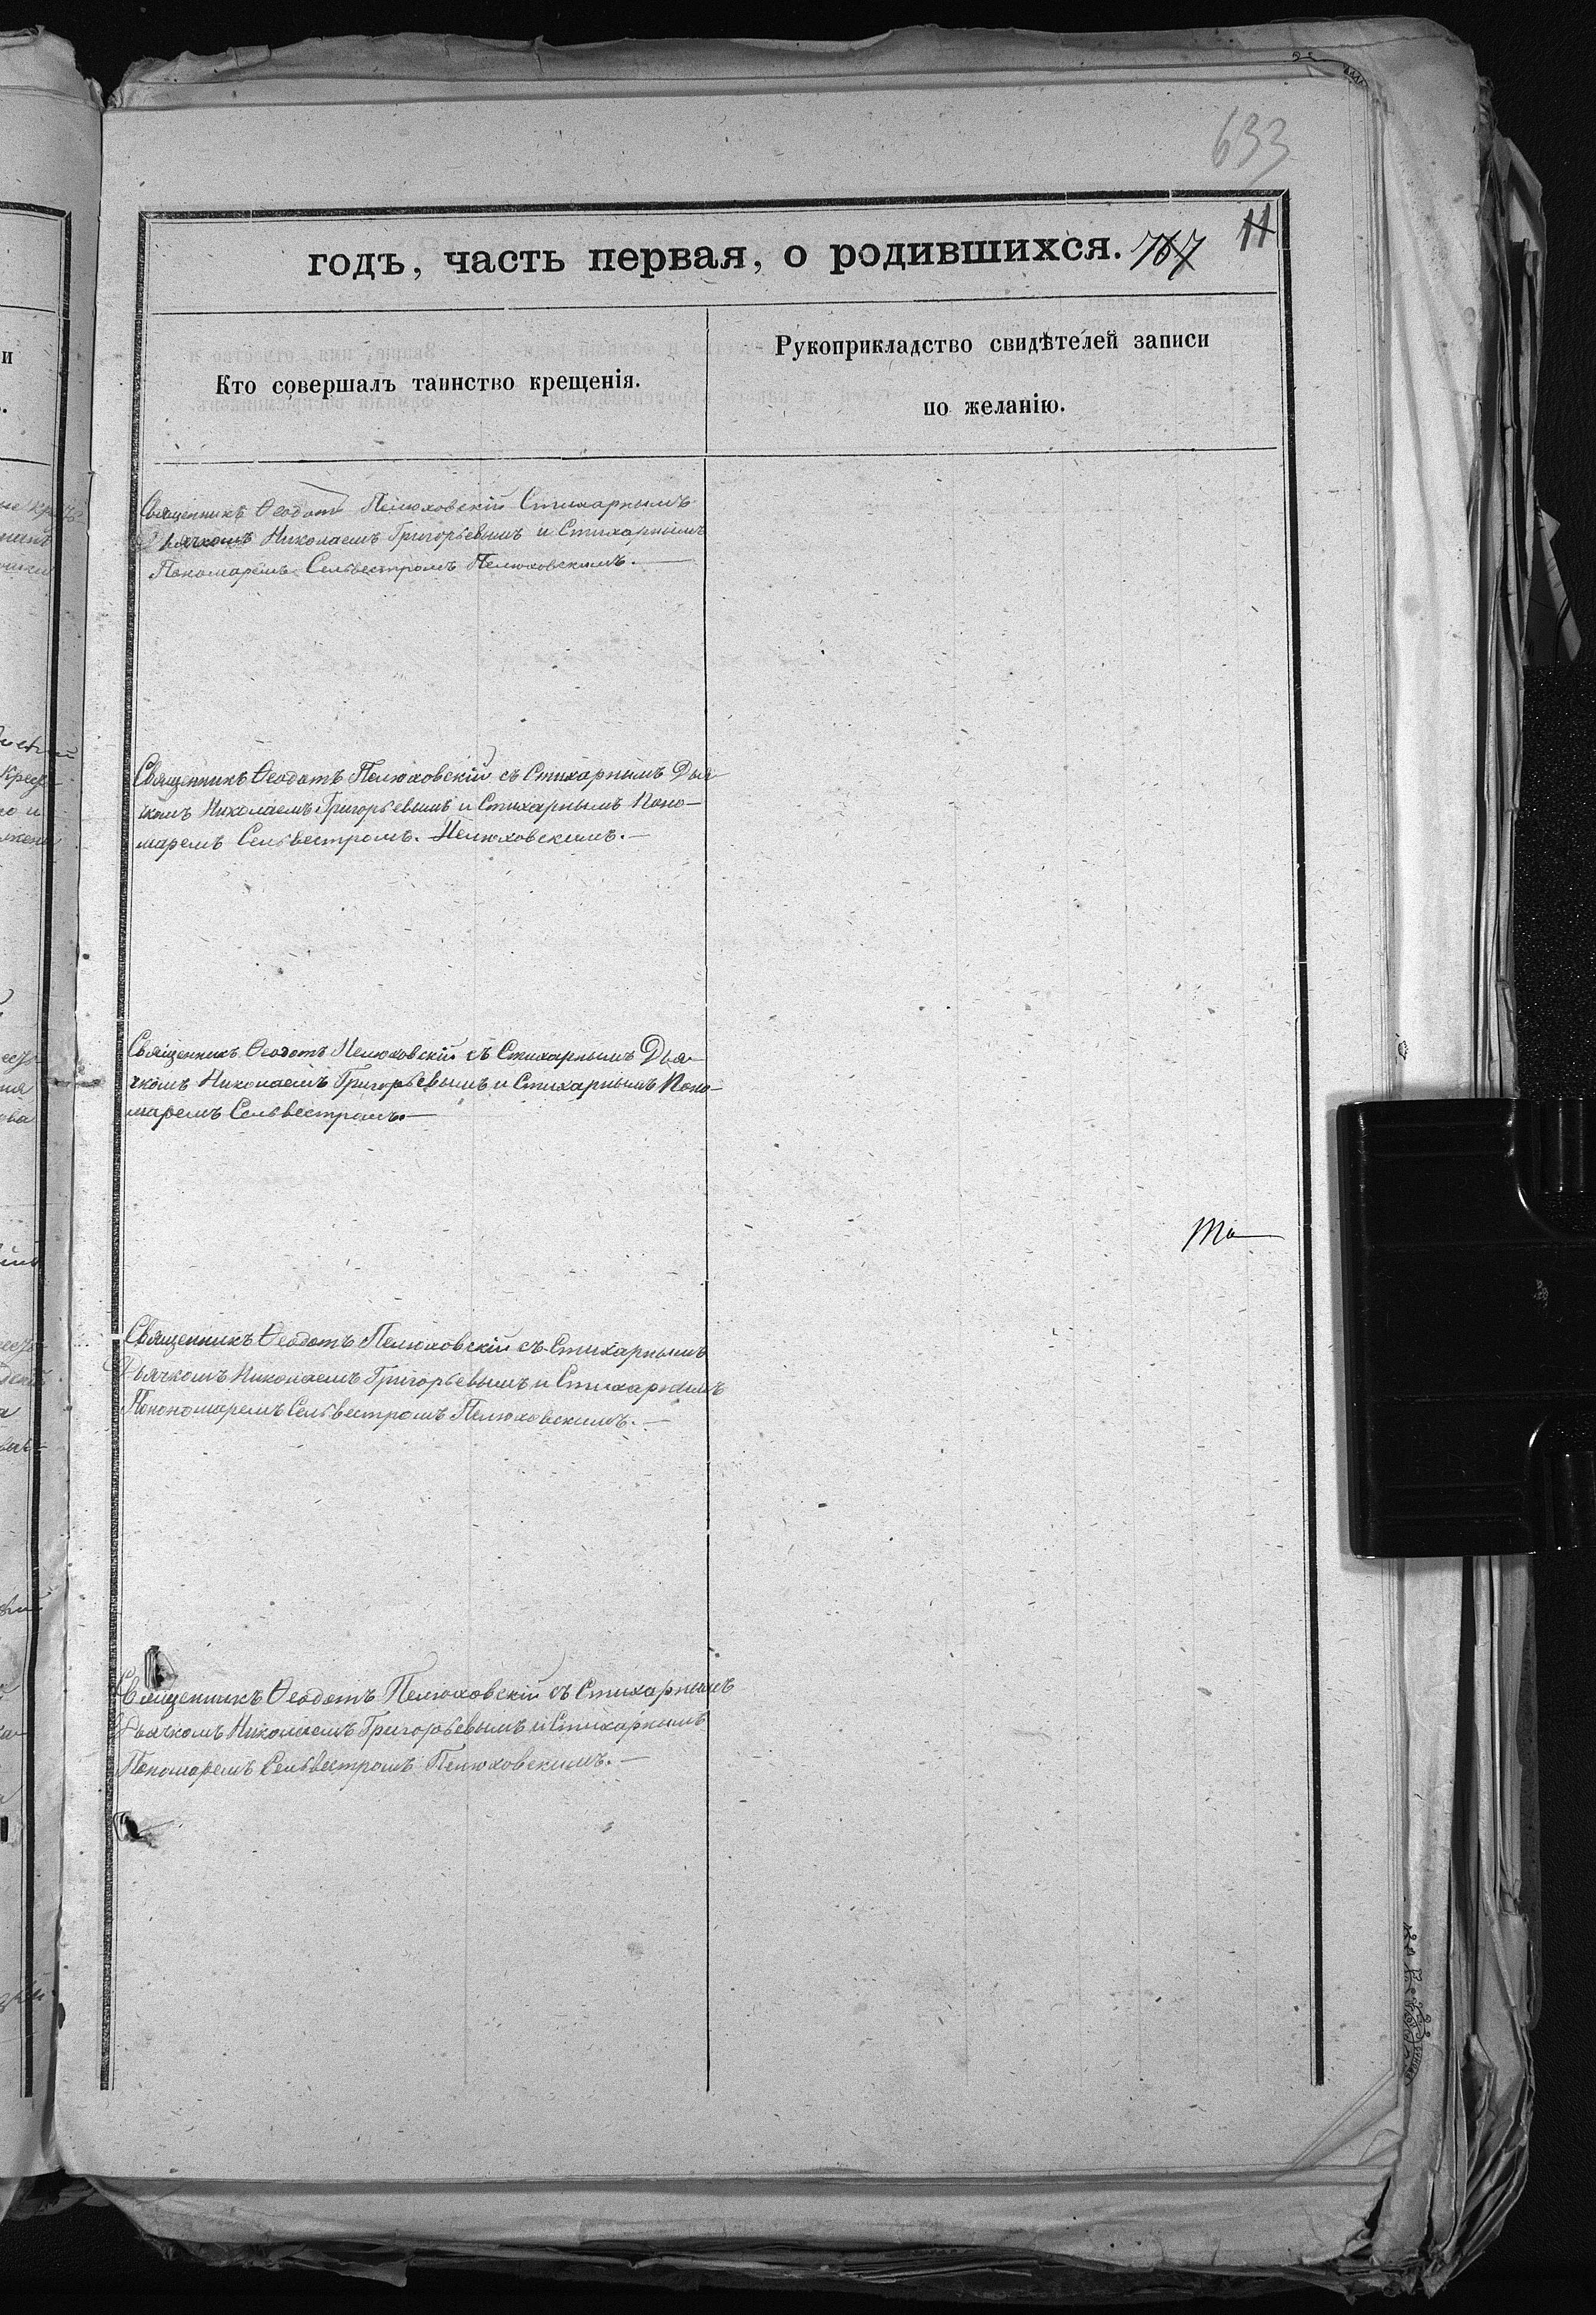 633
годъ, часть первая, о родившихся. 767 11
Кто совершалъ таинство крещенія.
Рукоприкладство свидѣтелей записи
по желанію.
Священникъ Ѳеодотъ Пелюховскій Стихарнымъ
Дьячкомъ Николаемъ Григорьевымъ и Стихарнымъ
Пономаремъ Сельвестромъ Пелюховскимъ.
Священникъ Ѳеодотъ Пелюховскій съ Стихарнымъ Дья-
чкомъ Николаемъ Григорьевымъ и Стихарнымъ Поно-
маремъ Сельвестромъ. Пелюховскимъ.
Священникъ Ѳеодотъ Пелюховскій съ Стихарнымъ Дья-
чкомъ Николаемъ Григорьевымъ и Стихарнымъ Поно-
маремъ Сельвестромъ.
Священникъ Ѳеодотъ Пелюховскій съ Стихарнымъ
Дьячкомъ Николаемъ Григорьевымъ и Стихарнымъ
Понономаремъ Сельвестромъ Пелюховскимъ.
Священникъ Ѳеодотъ Пелюховскій съ Стихарнымъ
Дьячкомъ Николаемъ Григорьевымъ и Стихарнымъ
Пономаремъ Сельвестромъ Пелюховскимъ.